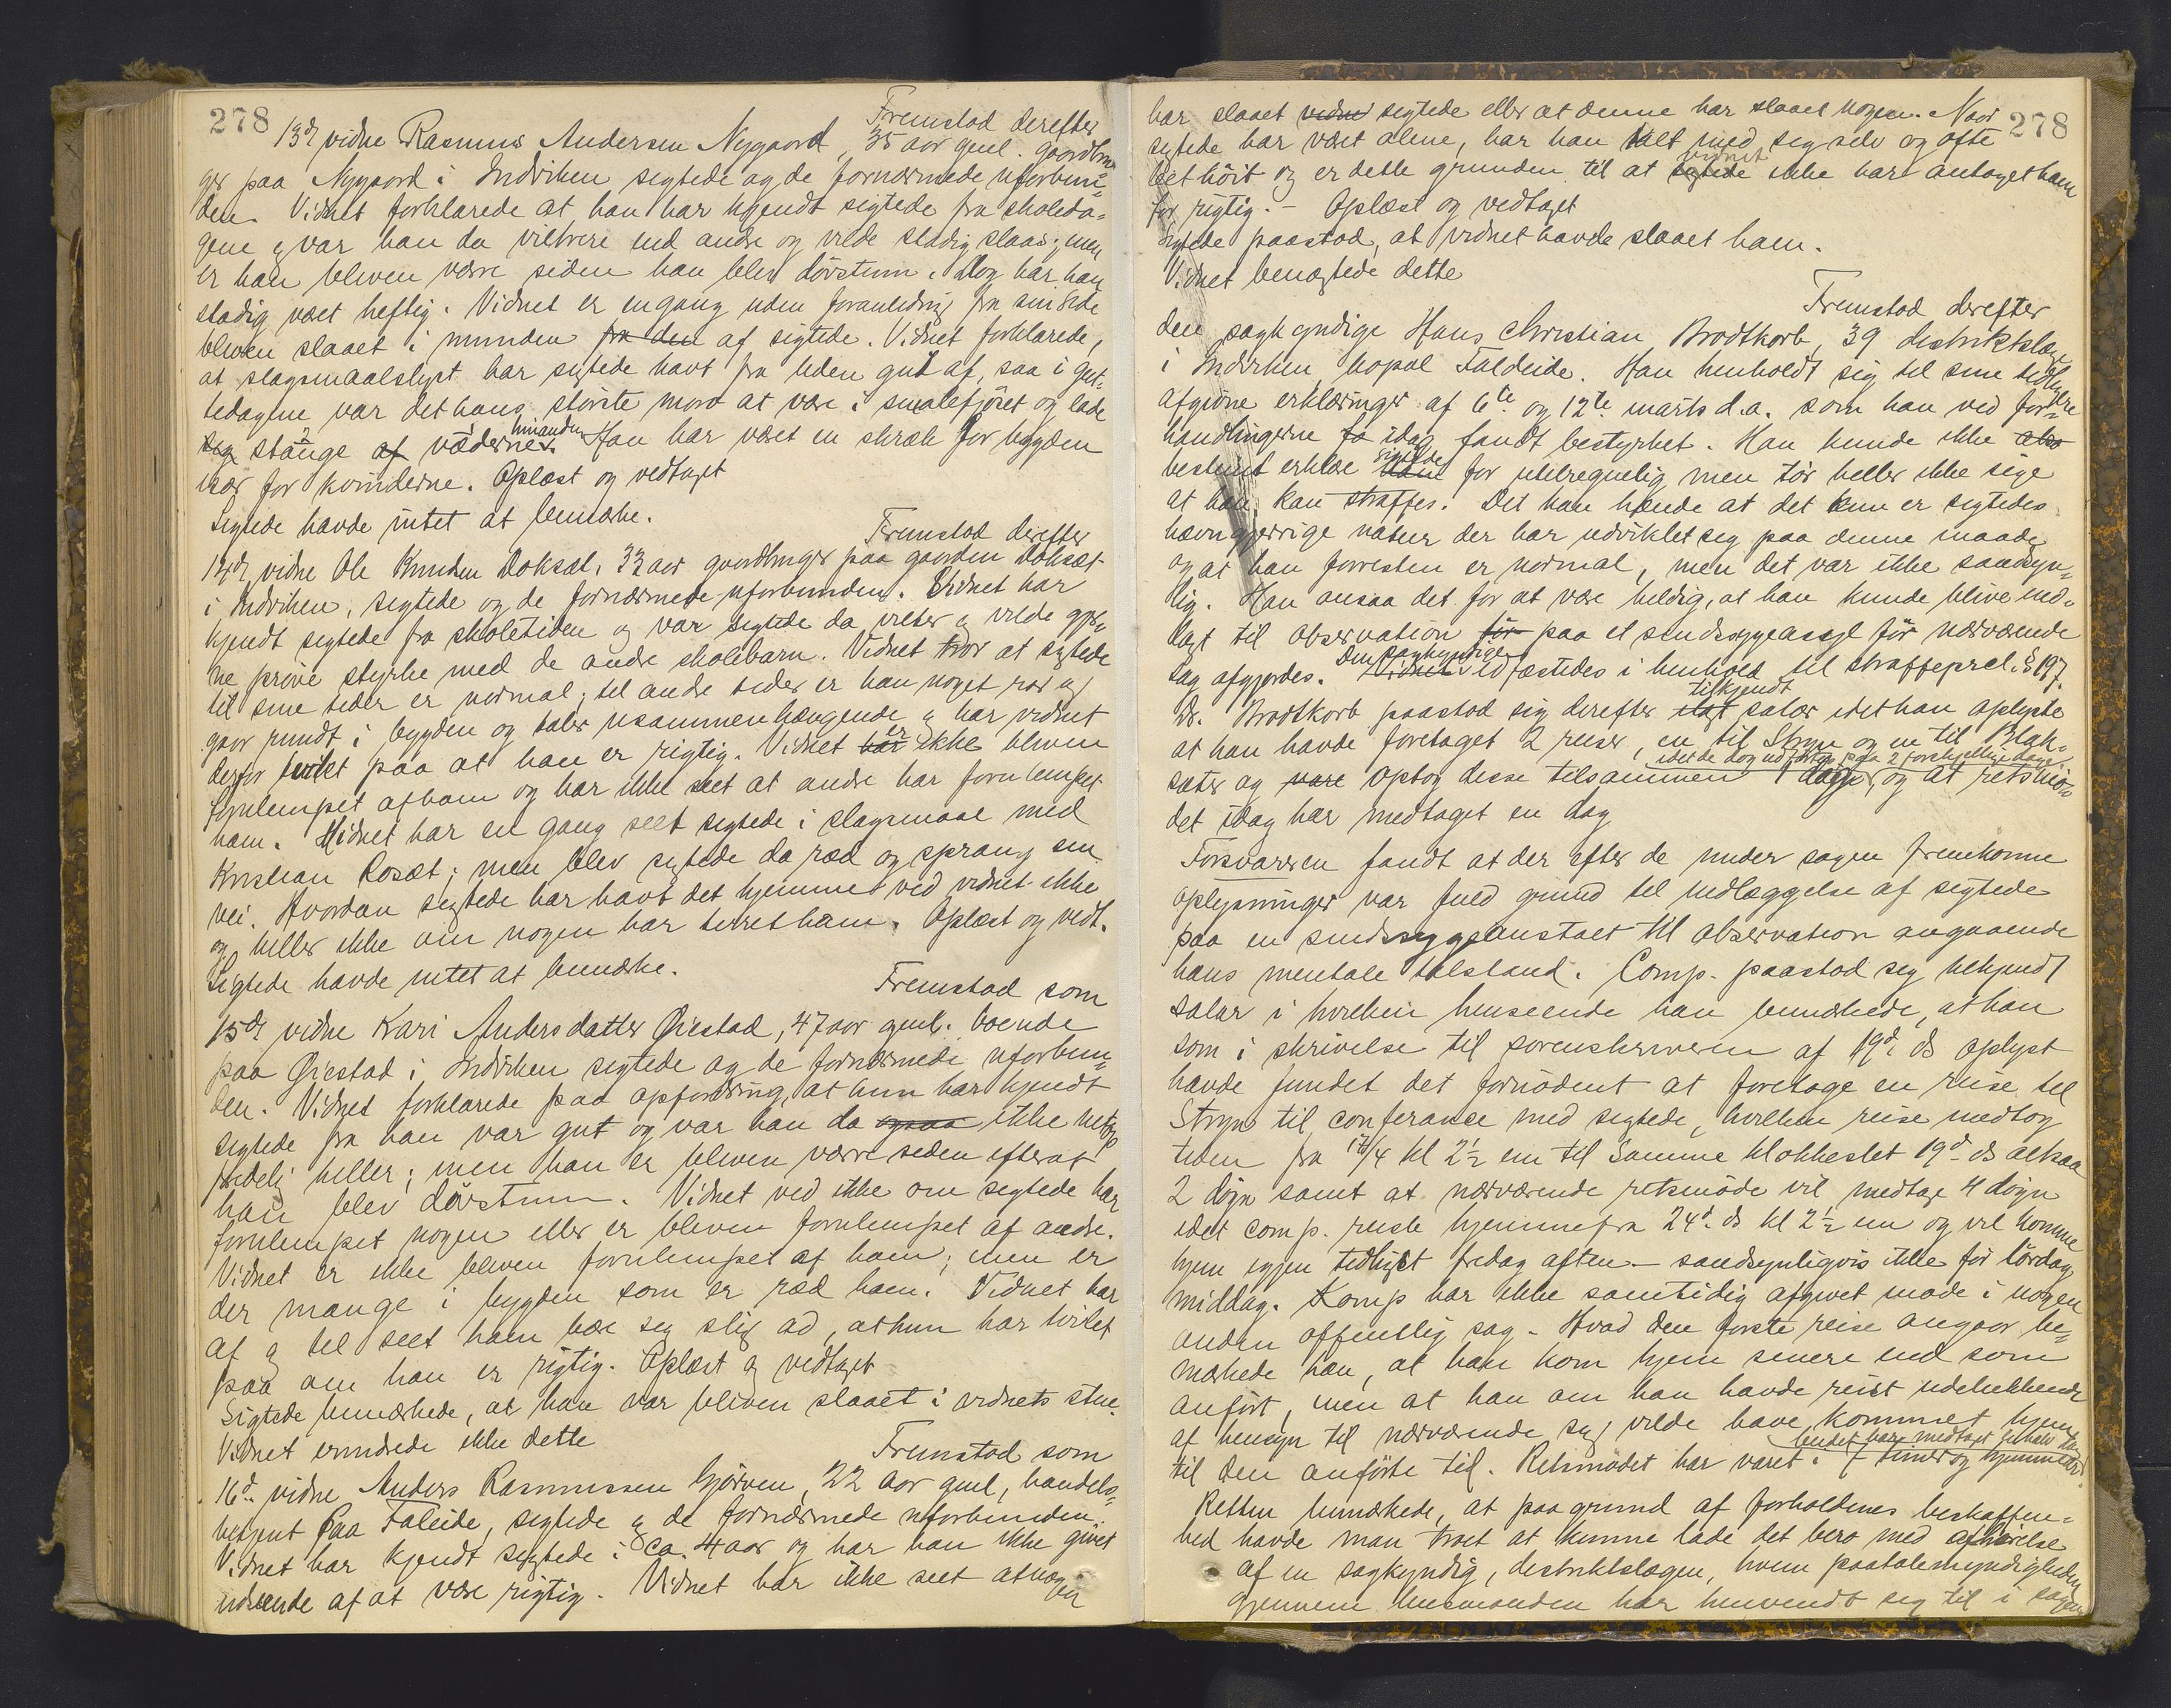 278
Fremstod derefter
13de vidne Rasmus Andersen Nygaard, 35 aar gml. gaardbru=
ger paa Nygaard i Indviken sigtede og de fornærmede uforbun=
den. Vidnet forklarede at han har kjendt sigtede fra skoleda=
gene og var han da viltrere end andre og vilde stadig slaas; men
er han bleven værre siden han blev døvstum. Dog har han
stadig været heftig. Vidnet er engang uden foranledning fra sin side
bleven slaaet i munden fra den af sigtede. Vidnet forklarede,
at slagsmaalslyst har sigtede havt fra liden gut af, saa i gut=
tedagene var det hans største moro at være i smalefjøset og lade
sig stange af væderne. hinanden Han har været en skræk for bygden
især for kvinderne. Oplæst og vedtaget
Sigtede havde intet at bemærke.
Fremstod derefter
14de vidne Ole Knudsen Doksæt, 33 aar gaardbruger paa gaarden Doksæt
i Indviken, sigtede og de fornærmede uforbunden. Vidnet har
kjendt sigtede fra skoletiden og var sigtede da vilter og vilde gjer=
ne prøve styrke med de andre skolebarn. Vidnet tror at sigtede
til sine tider er normal; til andre tider er han noget rar og
gaar rundt i bygden og taler usammenhængende og har vidnet
derfor tvilet paa at han er rigtig. Vidnet har er ikke bleven
fornlempet af ham og har ikke seet at andre har fornlempet
ham. Vidnet har en gang seet sigtede i slagsmaal med
Kristian Rosæt; men blev sigtede da ræd og sprang sin
vei. Hvordan sigtede har havt det hjemme ved vidnet ikke
og heller ikke om nogen har tirret ham. Oplæst og vedt.
Sigtede havde intet at bemærke.
Fremstod som
15de vidne Kari Andersdatter Øiestad, 47 aar gml. boende
paa Øiestad i Indviken sigtede og de fornærmede uforbun=
den. Vidnet forklarede paa opfordring, at hun har kjendt
sigtede fra han var gut og var han da ogsaa ikke netop
fredelig heller; men han er bleven værre siden efterat
han blev døvstum. Vidnet ved ikke om sigtede har
fornlempet nogen eller er bleven fornlempet af andre.
Vidnet er ikke bleven fornlempet af ham; men er
der mange i bygden som er ræd ham. Vidnet har
af og til seet ham bære sig slig ad, at hun har tvilet
paa om han er rigtig. Oplæst og vedtaget
Sigtede bemærkede, at han var bleven slaaet i vidnets stue.
Vidnet erindrede ikke dette
Fremstod som
16de vidne Anders Rasmussen Gjørven, 22 aar gml, handels=
betjent paa Faleide, sigtede og de fornærmede uforbunden.
Vidnet har kjendt sigtede i ca. 4 aar og har han ikke givet
udseende af at være rigtig. Vidnet har ikke seet at nogen
278
har slaaet vidne sigtede eller at denne har slaaet nogen. Naar
sigtede har været alene, har han talt med sig selv og ofte
leet høit og er dette grunden til at sigtede vidnet ikke har antaget ham
for rigtig. – Oplæst og vedtaget
Sigtede paastod, at vidnet havde slaaet ham.
Vidnet benægtede dette
Fremstod derefter
den sagkyndige Hans Christian Brodtkorb, 39 distriktslæge
i Indviken bopæl Faldeide. Han henholdt sig til sine tidligere
afgivne erklæringer af 6te og 12te marts d.a. som han ved for=
handlingerne fa idag fandt bestyrket. Han kunde ikke abs
bestemt erklære ham sigtede for utilregnelig men tør heller ikke sige
at han kan straffes. Det kan hænde at det kun er sigtedes
hævngjerrige natur der har udviklet sig paa denne maade
og at han forresten er normal, men det var ikke sandsyn=
lig. Han ansaa det for at være heldig, at han kunde blive ind=
lagt til observation før paa et sindssygeasyl før nærværende
sag afgjordes. Vidnet Den sagkyndige edfæstedes i henhold til straffeprcl. § 197.
Dr. Brodtkorb paastod sig derefter ilagt tilkjendt salær idet han oplyste
at han havde foretaget 2 reiser, en til Stryn og en til Blak=
sæter og vare optog disse tilsammen 1 dage idet de dog udførtes paa 2 forskjellige dage, og at retsmø=
det idag har medtaget en dag
Forsvareren fandt at der efter de under sagen fremkomne
oplysninger var fuld grund til indlæggelse af sigtede
paa en sindssygeanstalt til observation angaaende
hans mentale tilstand. Comp. paastod sig tilkjendt
salær i hvilken henseende han bemærkede, at han
som i skrivelse til sorenskriveren af 19de ds oplyst
havde fundet det fornødent at foretage en reise til
Stryn til conferance med sigtede, hvilken reise medtog
tiden fra 17/4 kl 2½ em til samme klokkeslet 19de ds altsaa
2 døgn samt at nærværende retsmøde vil medtage 4 døgn
idet comp. reiste hjemmefra 24de ds kl 2½ em og vil komme
hjem igjen tidligst fredag aften – sandsynligvis ikke før lørdag
middag. Komp har ikke samtidig afgivet møde i nogen
anden offentlig sag. – Hvad den første reise angaar be=
mærkede han, at han kom hjem senere end som
anført, men at han om han havde reist udelukkende
af hensyn til nærværende sag vilde have kommet hjem
til den anførte tid. Retsmødet har varet i 7 timer og
Retten bemærkede, at paa grund af forholdenes beskaffen=
hed havde man troet at kunne lade det bero med afhørelse
af en sagkyndig, distriktslægen, hvem paatalemyndigheden
gjennem lensmanden har henvendt sig til i sagen